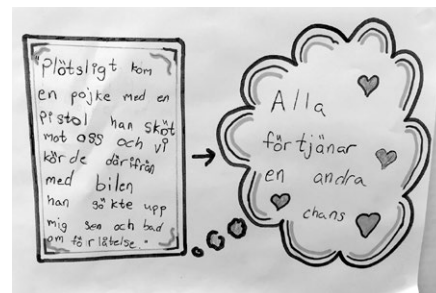 "Plötsligt kom
en pojke med en
pistol han sköt
mot oss och vi
körde därifrån
med bilen
han sökte upp
mig sen och bad
om förlåtelse."
Alla
förtjänar
en andra
chans